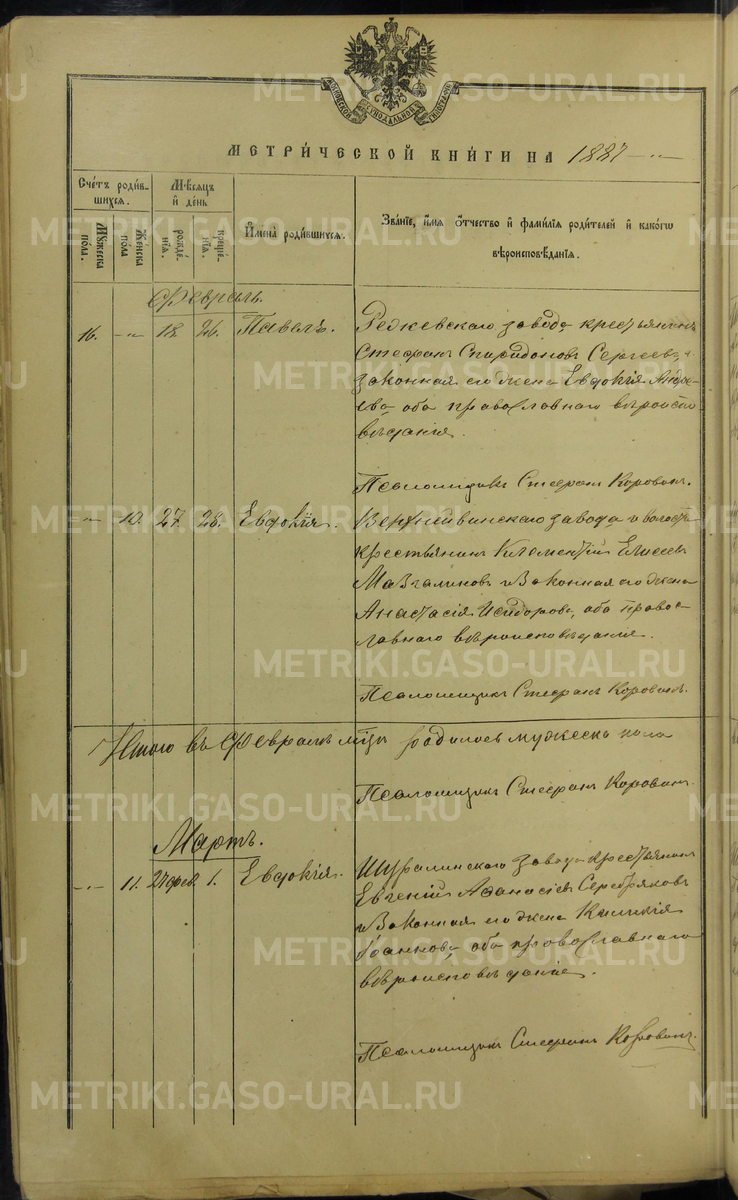 МОСКОВСКОЙ СУНОДАЛЬНОЙ ТИПОГРАФІИ
МЕТРИ́ЧЕСКОЙ КНИ́ГИ НА 1887
Счетъ роди́вшихся.
Мѣсяцъ и день
Имена̀ роди́вшихся.
Зва́ніе, и́мя о́тчество и фами́лія роди́телей и како́гѡ вѣроисповѣ́данія.
Мꙋ́жеска по́ла.
Же́нска по́ла
рожде́нія.
креще́нія.
Февраль.
16. -"- 18. 26. Павелъ.
Режевскаго завода крестьянинъ
Стефанъ Спиридоновъ Сергеевъ, и
законная его жена Евдокія Андре-
ева оба православнаго вѣроиспо-
вѣданія.
Псаломщикъ Стефанъ Коровинъ.
-"- 10. 27. 28. Евдокія.
Верхнейвинскаго завода и волости
крестьянинъ Климентій Елисеевъ
и законная его жена
Анастасія Исидорова, оба право-
славнаго вѣроисповѣданія.
Псаломщикъ Стефанъ Коровинъ.
Итого въ Февралѣ мцѣ родилось мужеска пола
Псаломщикъ Стефанъ Коровинъ.
Мартъ.
-"- 11. 27 фев. 1. Евдокія.
Шуралинскаго завода крестьянинъ
Евгеній Аѳанасіевъ Серебряковъ
и законная его жена
Іоаннова, оба православнаго
вѣроисповѣданіе.
Псаломщикъ Стефанъ Коровинъ.
METRIKI.GASO-URAL.RU